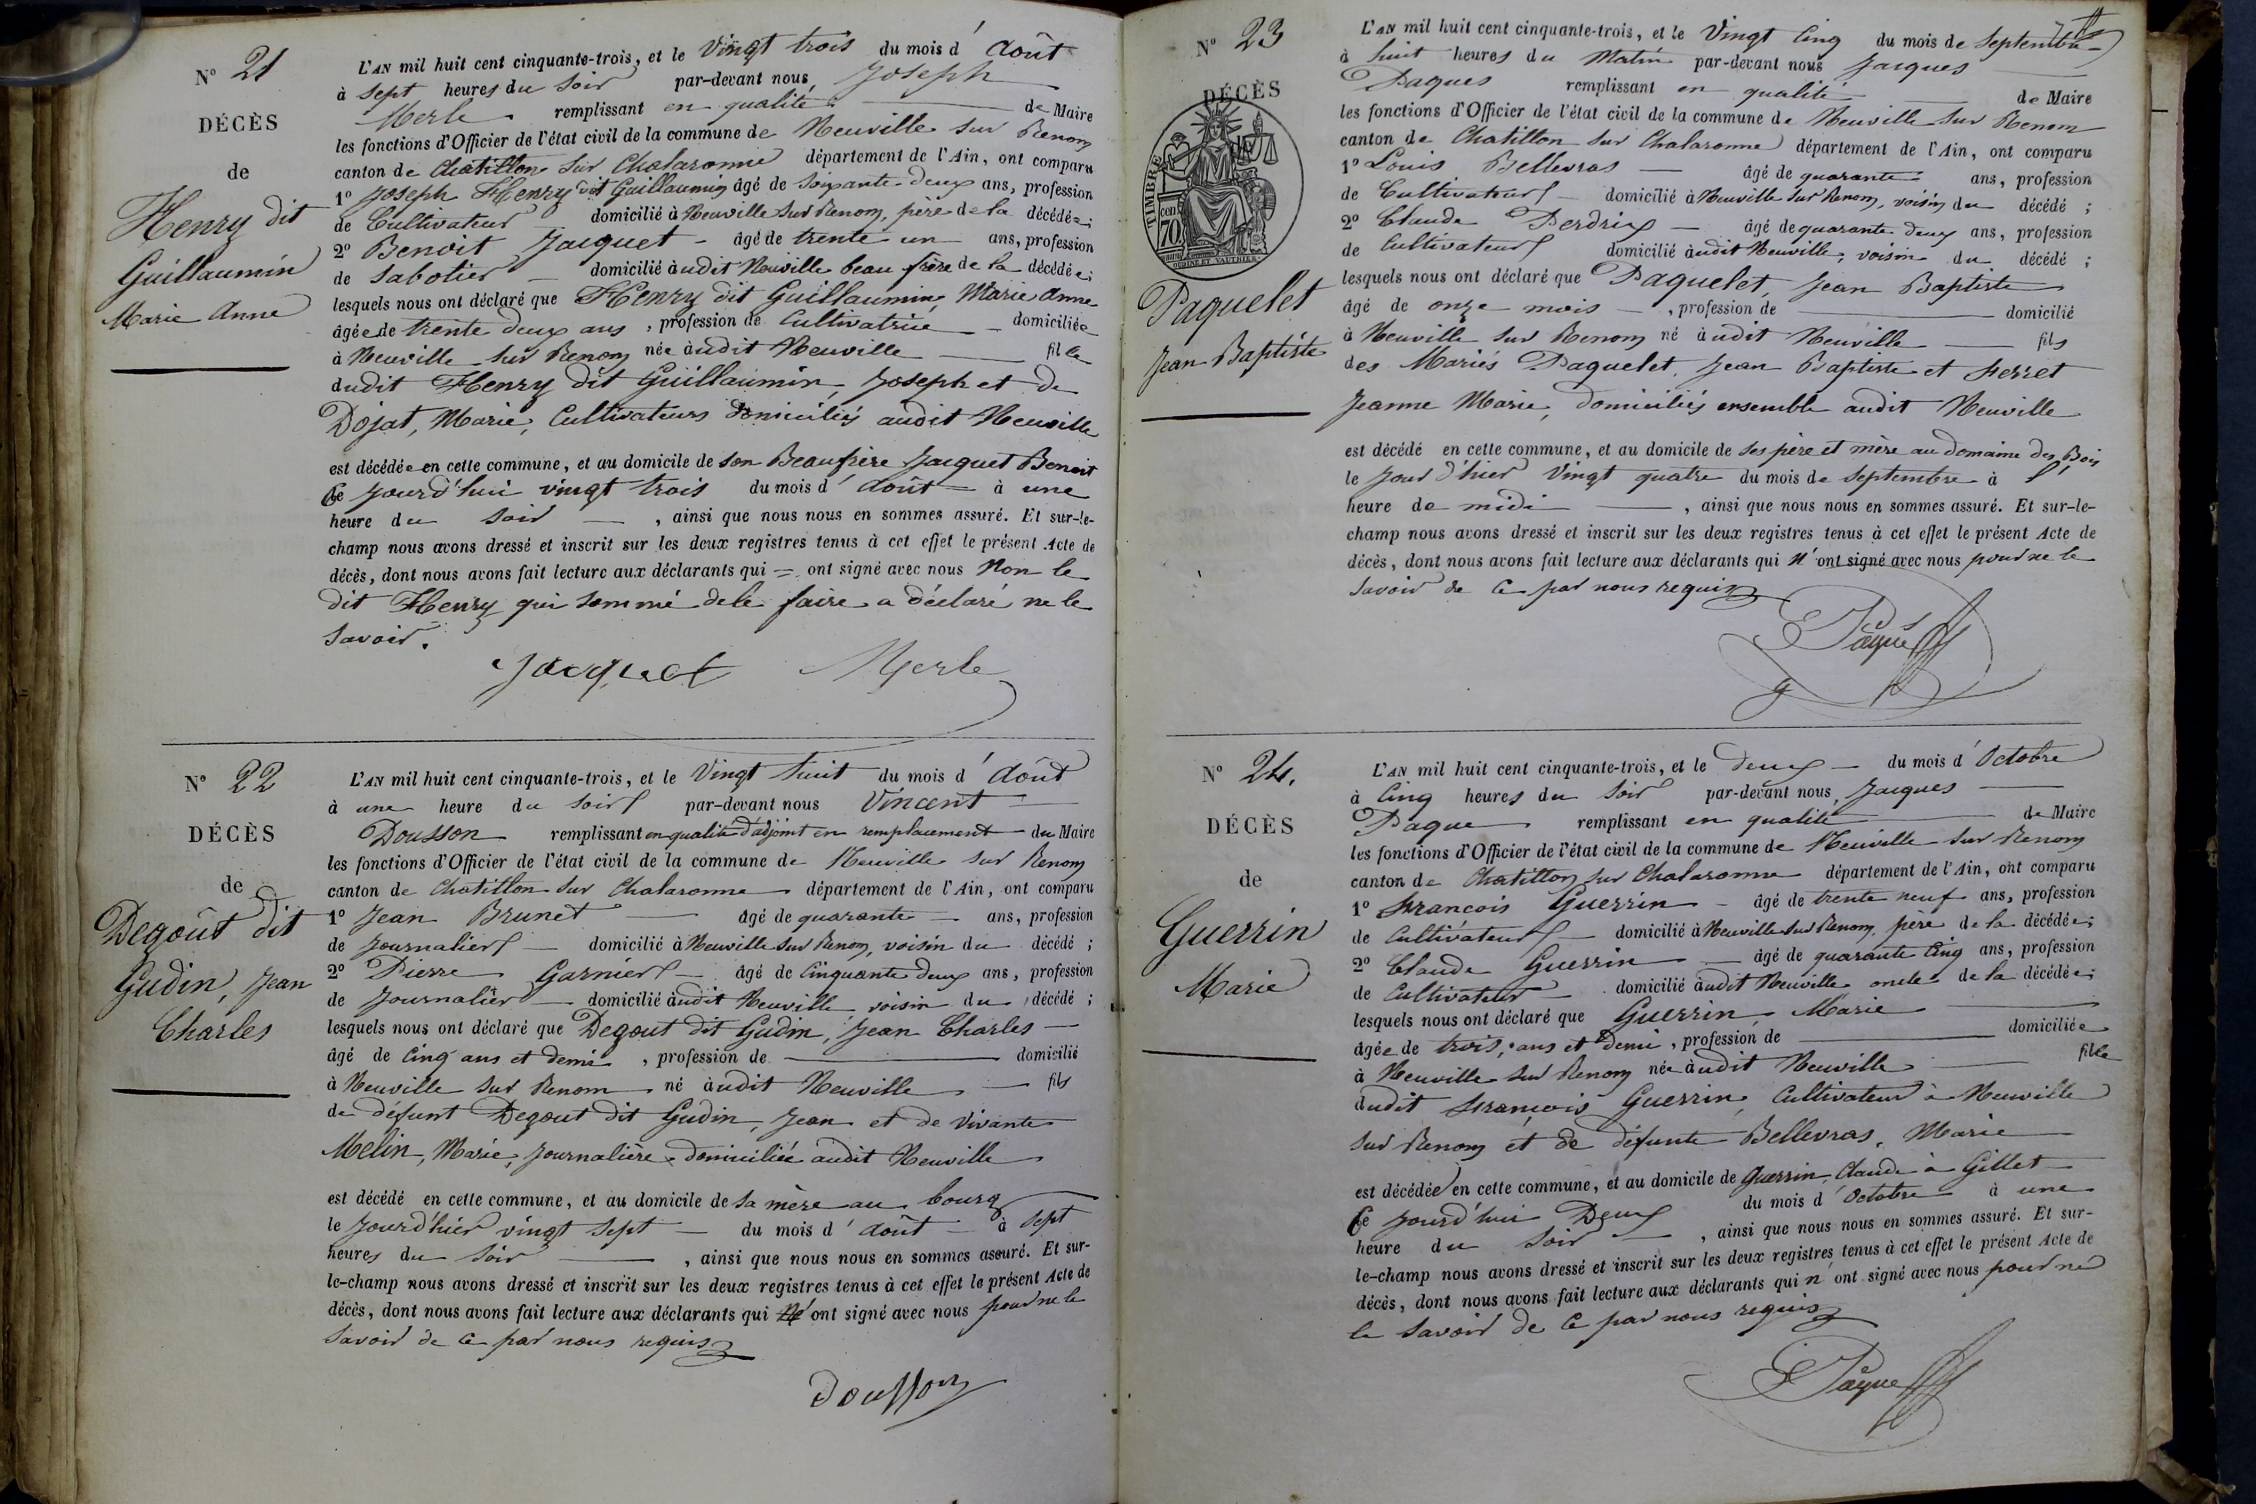 Nº 21
DÉCÈS
de
Henry dit
Guillaumin
Marie Anne
L'AN mil huit cent cinquante-trois, et le Vingt trois du mois d' Août
à sept heures du soir par-devant nous, Joseph
Merle remplissant en qualité de Maire
les fonctions d'Officier de l'état civil de la commune de Neuville sur Renom
canton de Chatillon sur Chalaronne département de l'Ain, ont comparu
1º Joseph Henry dit Guillaumin âgé de soixante deux ans, profession
de Cultivateur domicilié à Neuville sur Renom, père de la décédée;
2º Benoit Jacquet - âgé de trente un ans, profession
de Sabotier domicilié àudit Neuville beau frère de la décédée;
lesquels nous ont déclaré que Henry dit Guillaumin, Marie Anne
âgée de trente deux ans, profession de Cultivatrice domiciliée
à Neuville sur Renom née àudit Neuville fille
dudit Henry dit Guillaumin, Joseph et de
Dojat, Marie, Cultivateurs domiciliés audit Neuville
est décédée en cette commune, et au domicile de son Beaufrère Jacquet Benoit
Ce jourd'hui vingt trois du mois d' Août à une
heure du soir, ainsi que nous nous en sommes assuré. Et sur-le-
champ nous avons dressé et inscrit sur les deux registres tenus à cet effet le présent Acte de
décès, dont nous avons fait lecture aux déclarants qui = ont signé avec nous Non le
dit Henry qui sommé de le faire a déclaré ne le
savoir.
Jacquet Merle
Nº 22
DÉCÈS
de
Degoût dit
Gudin, Jean
Charles
L'AN mil huit cent cinquante-trois, et le Vingt huit du mois d' Août
à une heure du soir par-devant nous Vincent
Dousson remplissant en qualité d'adjoint en remplacement du Maire
les fonctions d'Officier de l'état civil de la commune de Neuville sur Renom
canton de Chatillon sur Chalaronne département de l'Ain, ont comparu
1º Jean Brunet âgé de quarante ans, profession
de Journalier domicilié à Neuville sur Renom, voisin du décédé ;
2º Pierre Garnier âgé de Cinquante deux ans, profession
de Journalier domicilié àudit Neuville voisin du décédé ;
lesquels nous ont déclaré que Degout dit Gudin, Jean Charles
âgé de Cinq ans et demi, profession de domicilié
à Neuville sur Renom né àudit Neuville fils
de défunt Degout dit Gudin, Jean et de vivante
Melin, Marie, Journalière domiciliée audit Neuville
est décédé en cette commune, et au domicile de sa mère au bourg
le jourd'hier vingt sept du mois d' Août à sept
heures du soir, ainsi que nous nous en sommes assuré. Et sur-
le-champ nous avons dressé et inscrit sur les deux registres tenus à cet effet le présent Acte de
décès, dont nous avons fait lecture aux déclarants qui n' ont signé avec nous pour ne le
savoir de ce par nous requis
Dousson
Nº 23
DÉCÈS
TIMBRE
70
Paquelet
Jean Baptiste
L'AN mil huit cent cinquante-trois, et le Vingt Cinq du mois de Septembre
à huit heures du Matin par-devant nous Jacques
Paques remplissant en qualité de Maire
les fonctions d'Officier de l'état civil de la commune de Neuville sur Renom
canton de Chatillon sur Chalaronne département de l'Ain, ont comparu
1º Louis Bellevras âgé de quarante ans, profession
de Cultivateur domicilié à Neuville sur Renom, voisin du décédé ;
2º Claude Perdrix âgé de quarante deux ans, profession
de Cultivateur domicilié àudit Neuville, voisin du décédé ;
lesquels nous ont déclaré que Paquelet, Jean Baptiste
âgé de onze mois, profession de domicilié
à Neuville sur Renom né àudit Neuville fils
des Mariés Paquelet, Jean Baptiste et Ferret
Jeanne Marie, domiciliés ensemble audit Neuville
est décédé en cette commune, et au domicile de ses père et mère au domaine des Bois
le jour d'hier Vingt quatre du mois de Septembre à l'
heure de midi, ainsi que nous nous en sommes assuré. Et sur-le-
champ nous avons dressé et inscrit sur les deux registres tenus à cet effet le présent Acte de
décès, dont nous avons fait lecture aux déclarants qui n' ont signé avec nous pour ne le
savoir de ce par nous requis
Paque
Nº 24.
DÉCÈS
de
Guerrin
Marie
L'AN mil huit cent cinquante-trois, et le deux du mois d' Octobre
à Cinq heures du soir par-devant nous, Jacques
Paque remplissant en qualité de Maire
les fonctions d'Officier de l'état civil de la commune de Neuville sur Renom
canton de Chatillon sur Chalaronne département de l'Ain, ont comparu
1º Francois Guerrin - âgé de trente neuf ans, profession
de Cultivateur domicilié à Neuville sur Renom, père de la décédée;
2º Claude Guerrin âgé de quarante Cinq ans, profession
de Cultivateur domicilié àudit Neuville oncle de la décédée;
lesquels nous ont déclaré que Guerrin, Marie
âgée de trois, ans et demi, profession de domiciliée
à Neuville sur Renom née àudit Neuville fille
dudit François Guerrin, Cultivateur à Neuville
sur Renom et de défunte Bellevras, Marie
est décédée en cette commune, et au domicile de Guerrin, Claude à Gillet
Ce jourd'hui Deux du mois d' Octobre à une
heure du soir, ainsi que nous nous en sommes assuré. Et sur-
le-champ nous avons dressé et inscrit sur les deux registres tenus à cet effet le présent Acte de
décès, dont nous avons fait lecture aux déclarants qui n' ont signé avec nous pour ne
le savoir de ce par nous requis
Paque